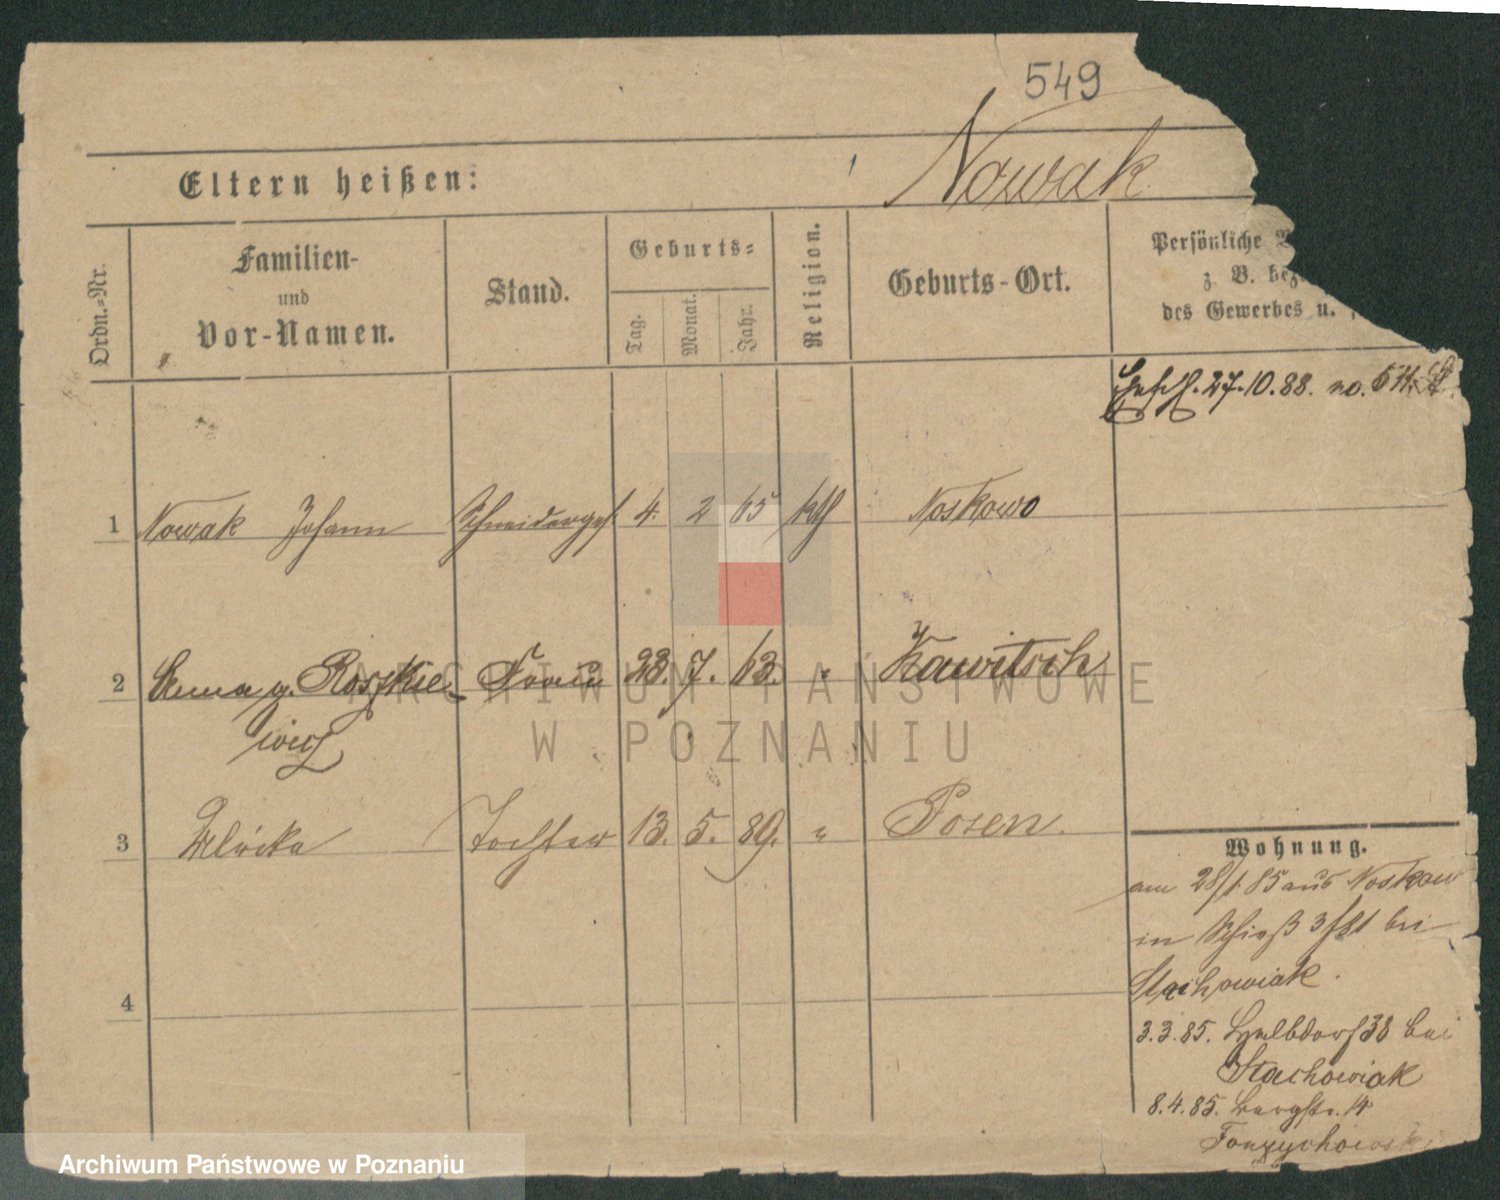 549
Eltern heißen:
Nowak
Ordn.-Nr.
Familien-
und
Vor-Namen.
Stand.
Geburts-
Tag.
Monat.
Jahr.
Religion.
Geburts-Ort.
Persönliche
z. B. bez
des Gewerbes u.
27.10.88. no.
1 Nowak Johann Schneiderges. 4. 2 65 kth Noskowo
2 g. Roszkie- Frau 28. 7. 63. " Rawitsch
wicz
3 Tochter 13. 5. 89. " Posen.
4
Wohnung.
am 28/1.85 aus Noskow
in bei
Stachowiak.
3.3.85. Halbdorf 38 bei
Stachowiak
8.4.85. Bergstr. 14
ARCHIWUM PAŃSTWOWE
W POZNANIU
Archiwum Państwowe w Poznaniu